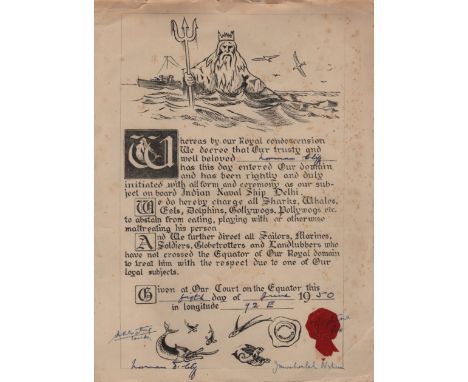 Whereas by our Royal condescension
We decree that Our trusty and
well beloved Norman
has this day entered Our domain
and has been rightly and duly
initiated with all form and ceremony as our sub-
ject on board Indian Naval Ship Delhi.
We do hereby charge all Sharks, Whales,
Eels, Dolphins, Gollywogs, Pollywogs etc.
to abstain from eating, playing with or otherwise
maltreating his person
And We further direct all Sailors, Marines,
Soldiers, Globetrotters and Landlubbers who
have not crossed the Equator of Our Royal domain
to treat him with the respect due to one of Our
loyal subjects.
Given at Our Court on the Equator this
day of June 1950
in longitude 92 E
Norman
Jawaharlal Nehru